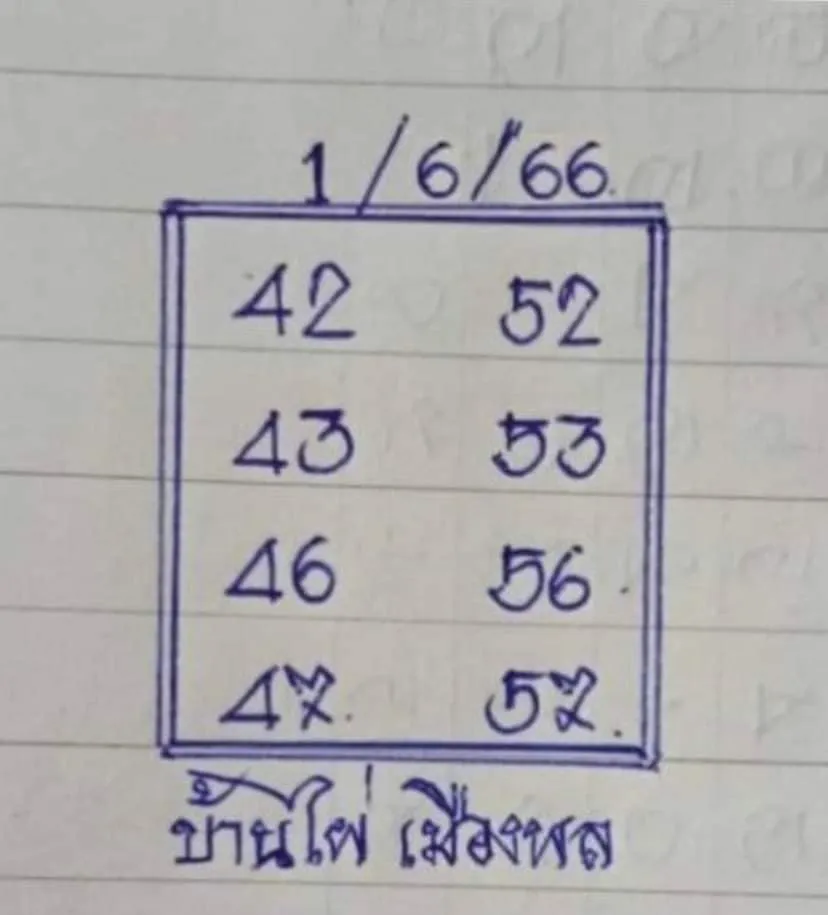 1/6/66
42 52
43 53
46 56
47 57
บ้านไผ่ เมืองพล